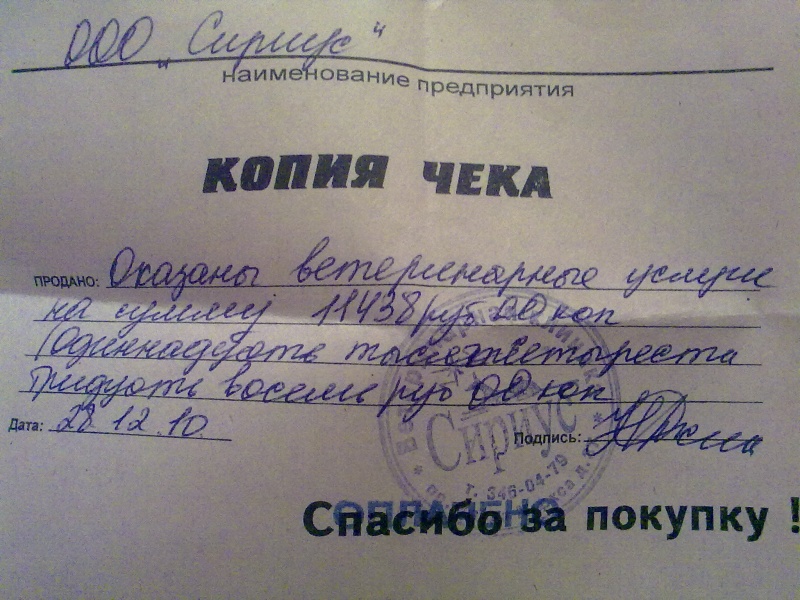 ООО „Сириус"
наименование предприятия
КОПИЯ ЧЕКА
ПРОДАНО: Оказаны ветеринарные услуги
на сумму 11438 руб 00 коп
(Одиннадцать тысяч четыреста
тридцать восемь руб 00 коп
Дата: 28.12.10.
Подпись:
Сириус
т. 346-04-79
ОПЛАЧЕНО
Спасибо за покупку !